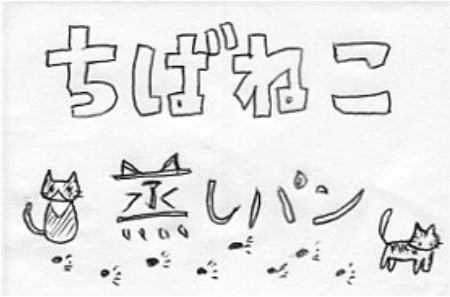 ちばねこ
蒸しパン